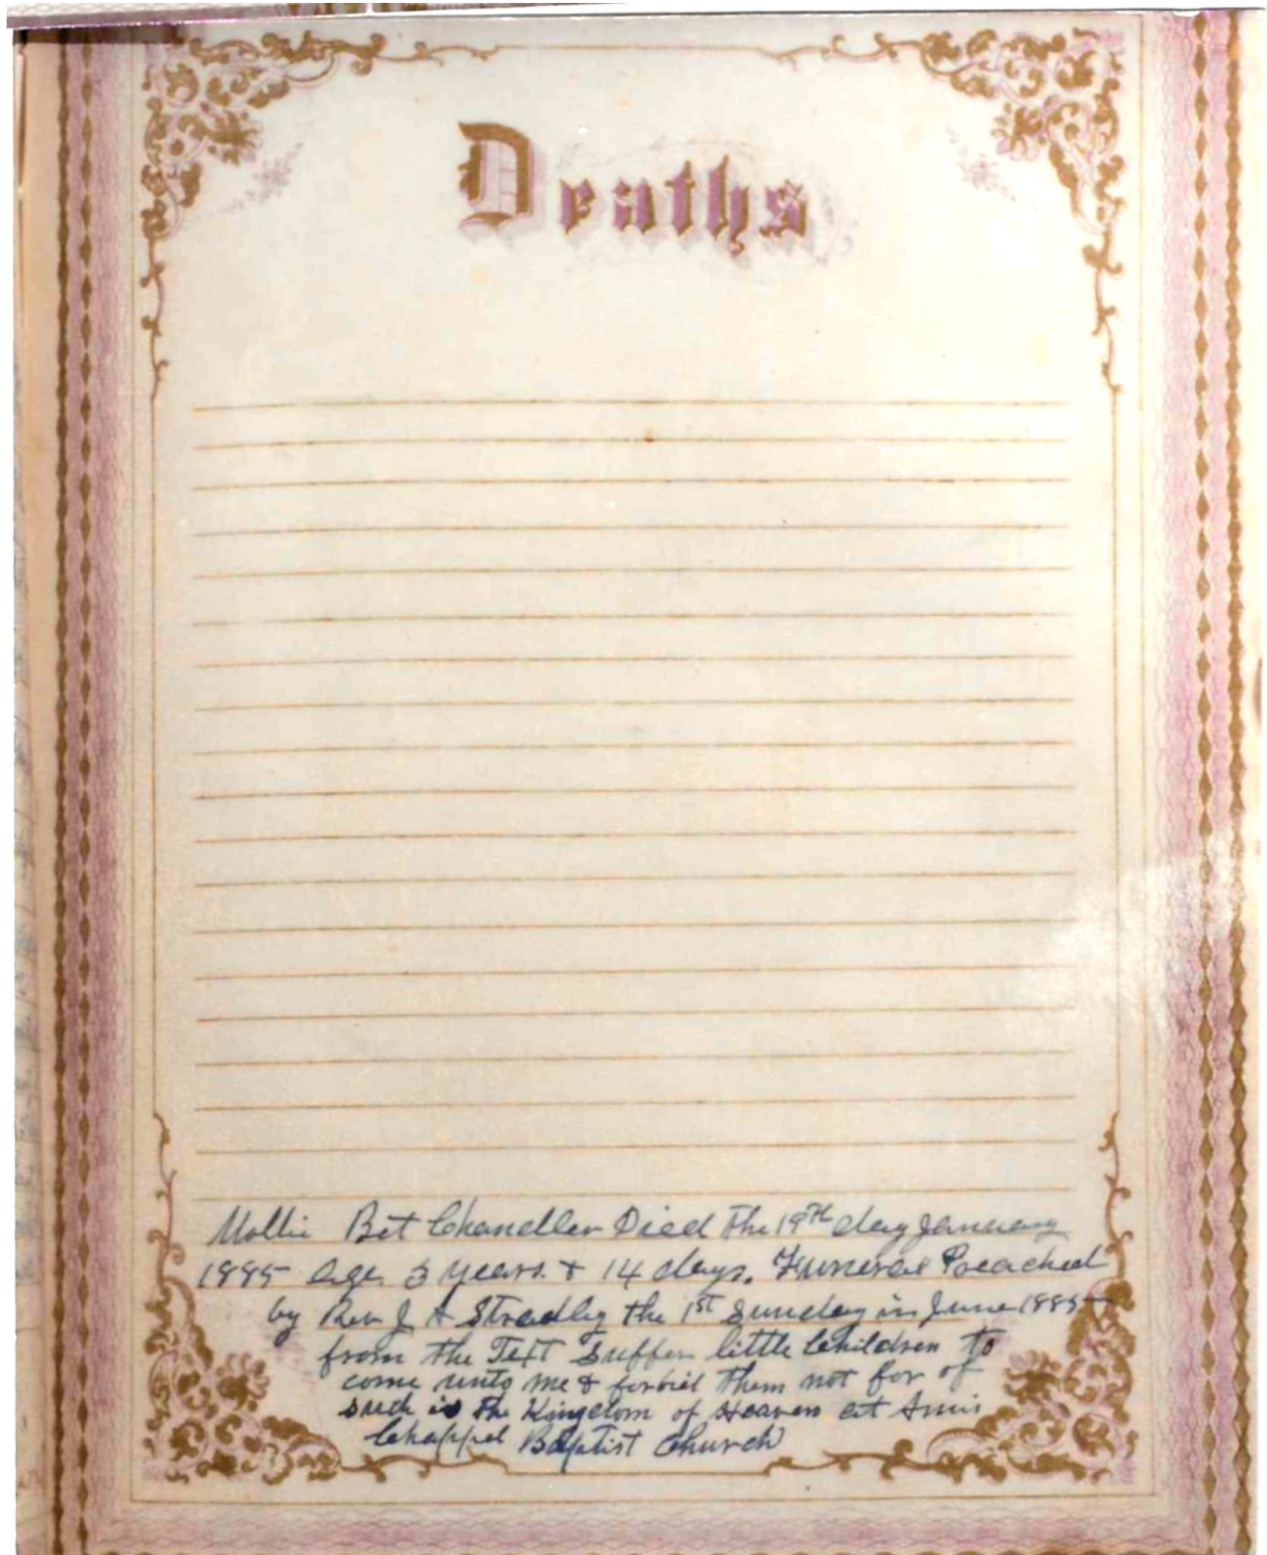 Deaths
Mollie Bet Chandler Died The 19TH day January
1885 age 3 years & 14 days. Funeral Preached
by Rev J A Stradley the 1ST Sunday in June 1885
from the Text Suffer little Children to
come unto me & forbid them not for of
such is The Kingdom of Heaven at
Chappel Baptist Church